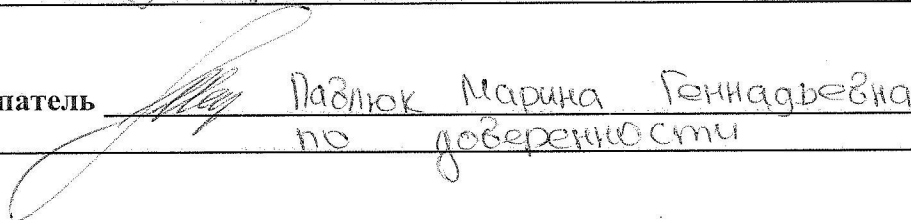 патель Павлюк Марина Геннадьевна
по доверенности